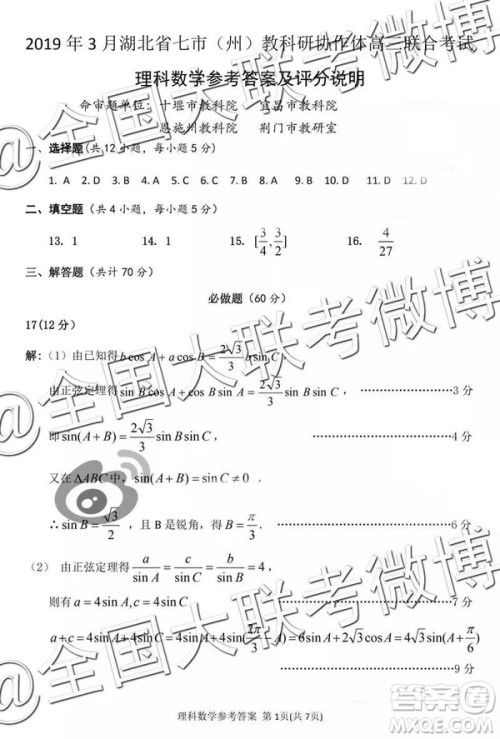 2019 年 3 月湖北省七市（州）教科研协作体高三联合考试
理科数学参考答案及评分说明
命审题单位：十堰市教科院 宜昌市教科院
恩施州教科院 荆门市教研室
一、选择题(共 12 小题，每小题 5 分)
1. A 2. D 3. A 4. D
10. D 11. D 12. D
二、填空题（共 4 小题，每小题 5 分）
13. 1 14. 1 15. [3/4, 3/2] 16. 4/27
三、解答题（共计 70 分）
必做题（60 分）
17(12 分)
解：（1）由已知得 b cos A + a cos B = (2√3/3) b sin C，
由正弦定理得 sin B cos A + cos B sin A = (2√3/3) sin B sin C， ………………3 分
即 sin(A + B) = (2√3/3) sin B sin C， ………………4 分
又在 ΔABC 中，sin(A + B) = sin C ≠ 0，
∴ sin B = √3/2，且 B 是锐角，所以 B = π/3. ………………6 分
（2） 由正弦定理得 a/sin A = c/sin C = b/sin B = 4，
则有 a = 4 sin A, c = 4 sin C， ………………7 分
a + c = 4 sin A + 4 sin C = 4 sin A + 4 sin(2π/3 − A) = 6 sin A + 2√3 cos A = 4√3 sin(A + π/6)
………………9 分
理科数学参考答案 第 1页(共 7页)
@全国大联考微博
@全国大联考微博
@全国大联考微博
答案圈